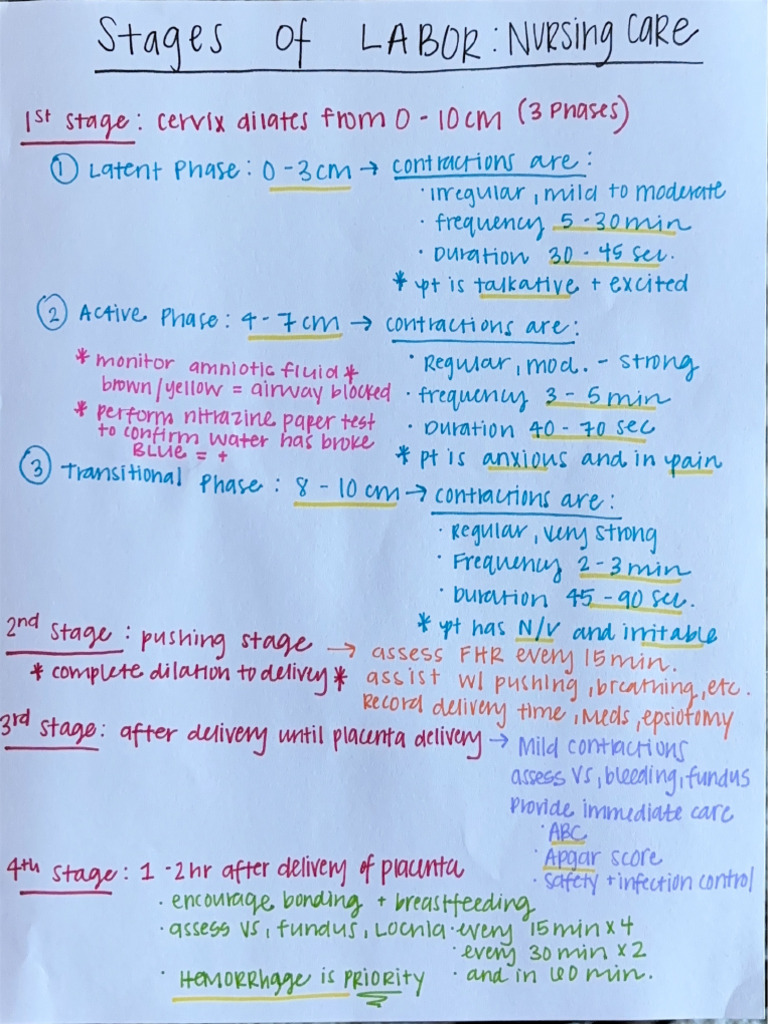 Stages of LABOR: Nursing Care
1st stage: cervix dilates from 0 - 10cm (3 Phases)
① Latent Phase: 0 - 3cm → contractions are:
· irregular, mild to moderate
· frequency 5 - 30min
· Duration 30 - 45 sec.
* pt is talkative + excited
② Active Phase: 4 - 7cm → contractions are:
* monitor amniotic fluid *
brown/yellow = airway blocked
* perform nitrazine paper test
to confirm water has broke
BLUE = +
· Regular, mod. - strong
· frequency 3 - 5 min
· Duration 40 - 70 sec
* pt is anxious and in pain
③ Transitional Phase: 8 - 10cm → contractions are:
· Regular, very strong
· Frequency 2 - 3min
· Duration 45 - 90 sec.
* pt has N/V and irritable
2nd stage: pushing stage → assess FHR every 15min.
* complete dilation to delivey * assist w/ pushing, breathing, etc.
Record delivery time, Meds, epsiotomy
3rd stage: after delivery until placenta delivery → Mild contractions
assess VS, bleeding, fundus
Provide immediate care
· ABC
· Apgar score
· safety + infection control
4th stage: 1 - 2hr after delivery of placenta
· encourage bonding + breastfeeding
· assess VS, fundus, Lochia · every 15min x 4
· every 30min x 2
· Hemorrhage is PRIORITY · and in 60 min.